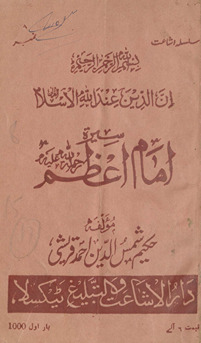 سلسلہ اشاعت
بسم اللہ الرحمن الرحیم
ان الدین عند اللہ الاسلام
سیرۃ
امام اعظم رحمۃ اللہ علیہ
مؤلفہ
حکیم شمس الدین احمد قریشی
دار الاشاعت والتبلیغ ٹیکسلا
بار اول 1000
قیمت ۶ آنے